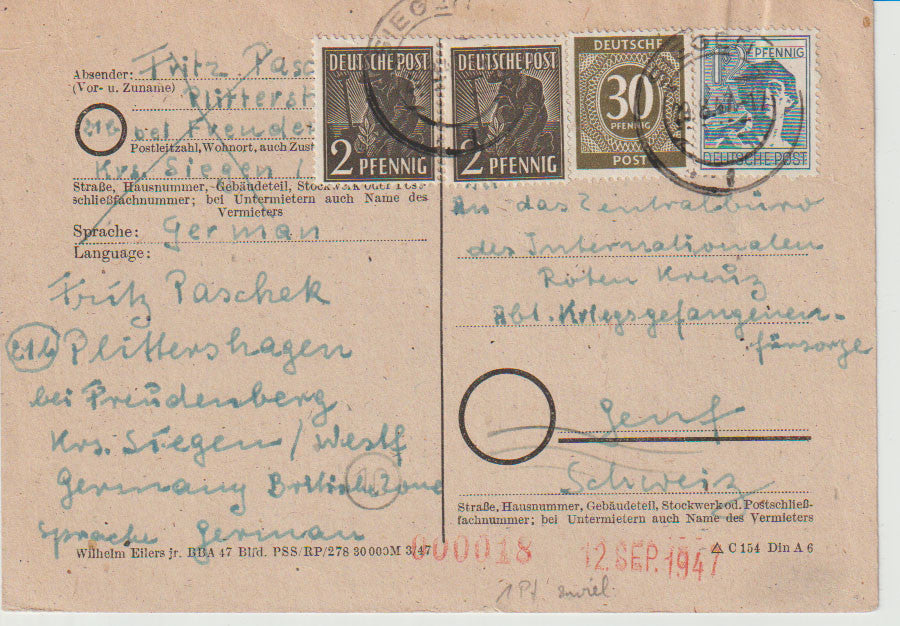 Absender: Fritz Pasc
(Vor- u. Zuname)
Plittersh
21b bei Freuden
Postleitzahl, Wohnort, auch Zust
Krs. Siegen /
Straße, Hausnummer, Gebäudeteil, Stockwerk oder Post-
schließfachnummer; bei Untermietern auch Name des
Vermieters
Sprache: German
Language:
Fritz Paschek
21b Plittershagen
bei Freudenberg
Krs. Siegen / Westf
Germany British Zone
Sprache German
Wilhelm Eilers jr. BBA 47 Blfd. PSS/RP/278 30 000M 3/47
SIEGEN
DEUTSCHE POST
2 PFENNIG
DEUTSCHE POST
2 PFENNIG
DEUTSCHE
30
PFENNIG
POST
12 PFENNIG
DEUTSCHE POST
An das Zentralbüro
des Internationalen
Roten Kreuz
Abt. Kriegsgefangenen-
fürsorge
Genf
Schweiz
Straße, Hausnummer, Gebäudeteil, Stockwerk od. Postschließ-
fachnummer; bei Untermietern auch Name des Vermieters
C 154 Din A 6
000018
12. SEP. 1947
1 Pf zuviel